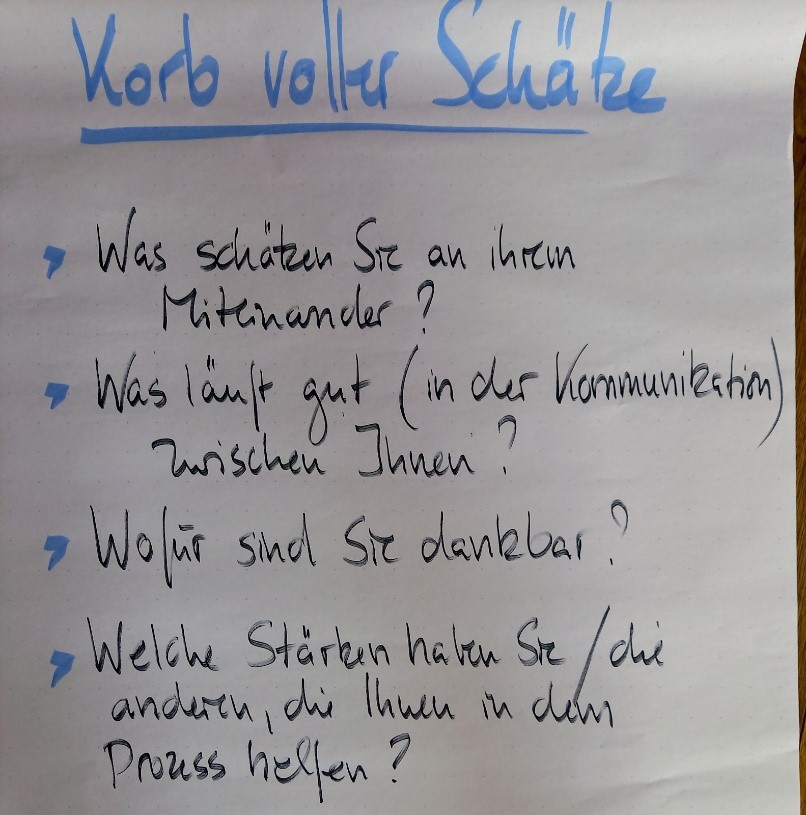 Korb voller Schätze
Was schätzen Sie an ihrem
Miteinander?
Was läuft gut (in der Kommunikation)
zwischen Ihnen?
Wofür sind Sie dankbar?
Welche Stärken haben Sie/die
anderen, die Ihnen in dem
Prozess helfen?